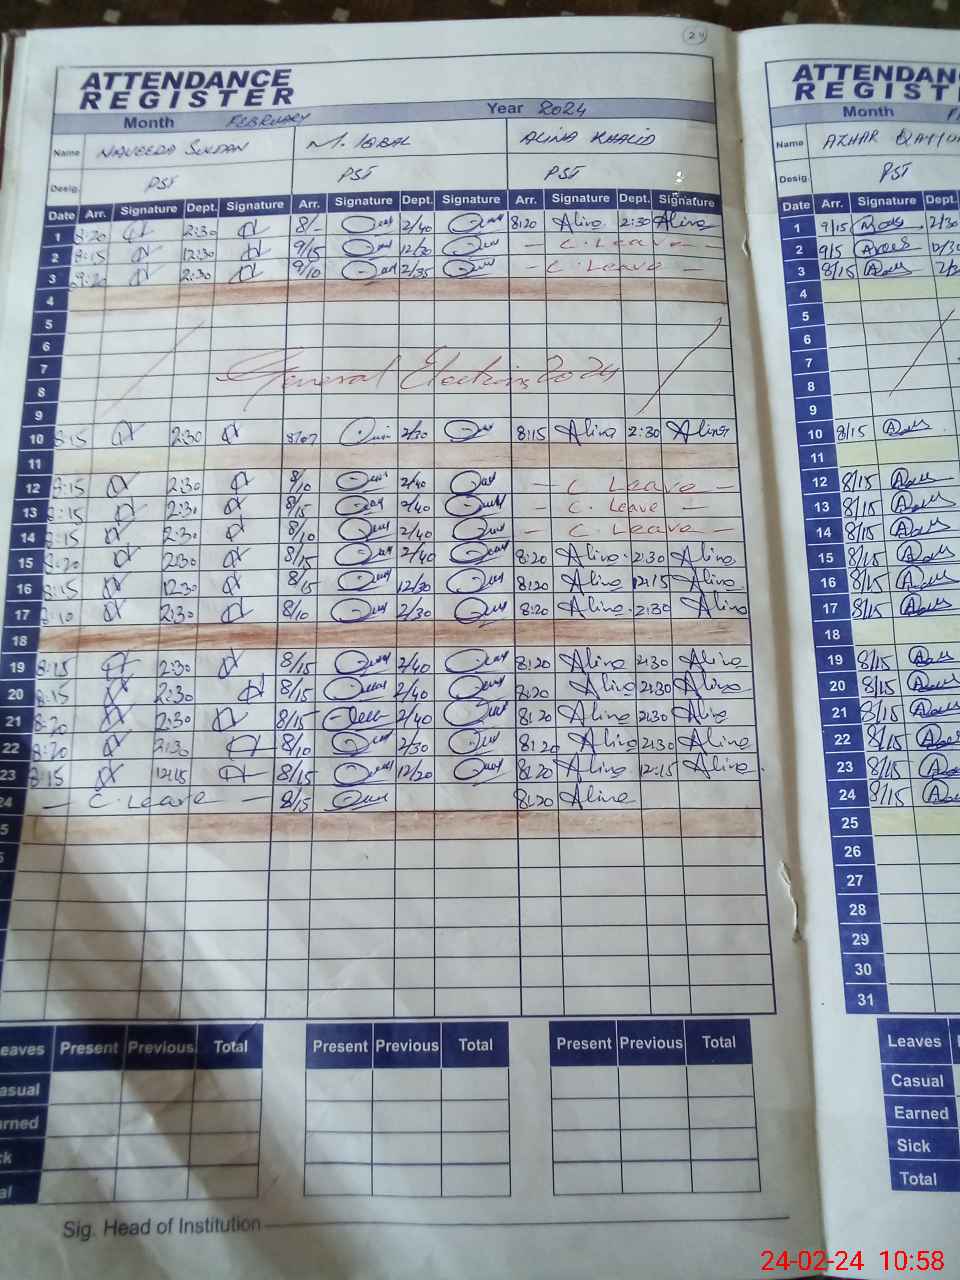 24
ATTENDANCE
REGISTER
Month FEBRUARY Year 2024
Name NAVEEDA SULTAN M. IQBAL ALINA KHALID
Desig. PST PST PST
Date Arr. Signature Dept. Signature Arr. Signature Dept. Signature Arr. Signature Dept. Signature
1 8:20 2:30 8/- 2/40 8:20 Alina 2:30 Alina
2 8:15 12:30 9/15 12/30 - C. Leave -
3 8:20 2:30 9/10 2/35 - C. Leave -
4
5
6
7 General Elections 2024
8
9
10 8:15 2:30 8/07 2/30 8:15 Alina 2:30 Alina
11
12 8:15 2:30 8/10 2/40 - C Leave -
13 8:15 2:30 8/15 2/40 - C. Leave -
14 8:15 2:30 8/10 2/40 - C. Leave -
15 8:20 2:30 8/15 2/40 8:20 Alina 2:30 Alina
16 8:15 12:30 8/15 12/30 8:20 Alina 12:15 Alina
17 8:10 2:30 8/10 2/30 8:20 Alina 2:30 Alina
18
19 8:15 2:30 8/15 2/40 8:20 Alina 2:30 Alina
20 8:15 2:30 8/15 2/40 8:20 Alina 2:30 Alina
21 8:20 2:30 8/15 2/40 8:20 Alina 2:30 Alina
22 8:20 2:30 8/10 2/30 8:20 Alina 2:30 Alina
23 8:15 12:15 8/15 12/20 8:20 Alina 12:15 Alina
24 - C. Leave - 8/15 8:20 Alina
5
Leaves Present Previous Total Present Previous Total Present Previous Total
Casual
Earned
Sig. Head of Institution
ATTENDANC
REGIST
Month
Name AZHAR
Desig. PST
Date Arr. Signature Dept.
1 9/15 2/30
2 9/5 12/30
3 8/15
4
5
6
7
8
9
10 8/15
11
12 8/15
13 8/15
14 8/15
15 8/15
16 8/15
17 8/15
18
19 8/15
20 8/15
21 8/15
22 8/15
23 8/15
24 8/15
25
26
27
28
29
30
31
Leaves
Casual
Earned
Sick
Total
24-02-24 10:58